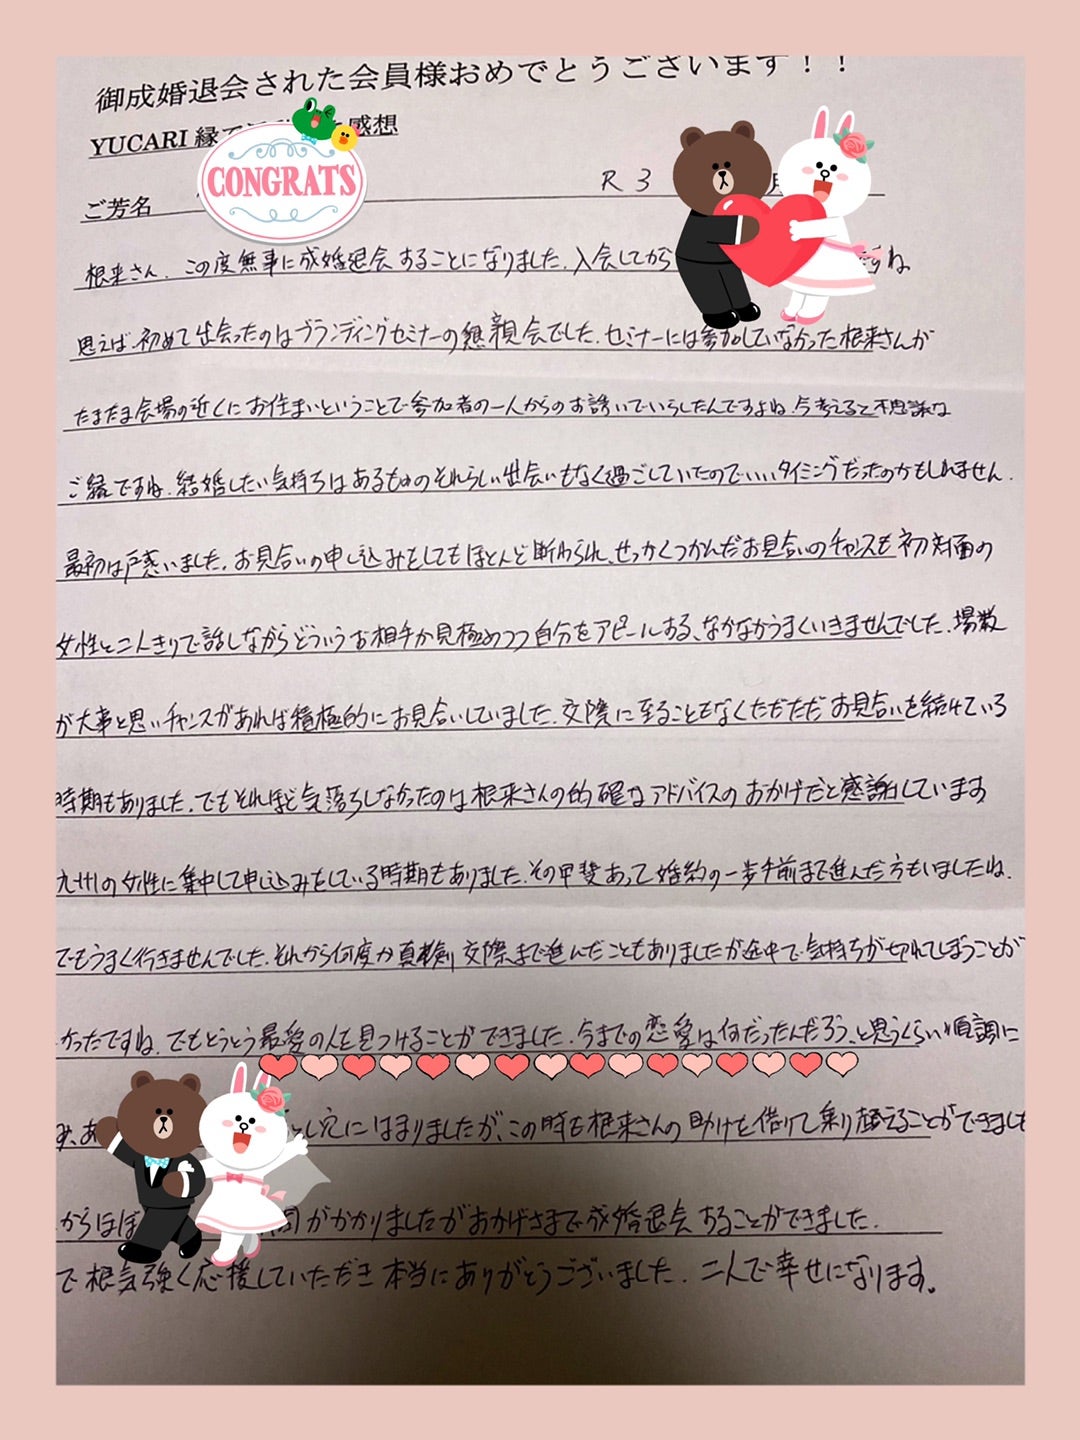 御成婚退会された会員様おめでとうございます！！
YUCARI 縁で 感想
CONGRATS
ご芳名 R 3 月
根来さん、この度無事に成婚退会することになりました。入会してから すね
思えば初めて出会ったのはブランディングセミナーの懇親会でした。セミナーには参加していなかった根来さんが
たまたま会場の近くにお住まいということで参加者の一人からのお誘いでいらしたんですよね。今考えると不思議な
ご縁ですね。結婚したい気持ちはあるもののそれらしい出会いもなく過ごしていたのでいいタイミングだったのかもしれません。
最初は戸惑いました。お見合いの申し込みをしてもほとんど断わられ、せっかくつかんだお見合いのチャンスも初対面の
女性と二人きりで話しながらどういうお相手か見極めつつ自分をアピールする、なかなかうまくいきませんでした。場数
が大事と思いチャンスがあれば積極的にお見合いしていました。交際に至ることもなくただただお見合いを続けている
時期もありました。でもそれほど気落ちしなかったのは根来さんの的確なアドバイスのおかげだと感謝しています
九州の女性に集中して申し込みをしている時期もありました。その甲斐あって婚約の一歩手前まで進んだ方もいましたね。
でもうまく行きませんでした。それから何度か真剣交際まで進んだこともありましたが途中で気持ちが切れてしまうことが
かったですね。でもとうとう最愛の人を見つけることができました。今までの恋愛は何だったんだろう、と思うくらい順調に
み、あ とし穴にはまりましたが、この時も根来さんの助けを借りて乗り越えることができました
からほぼ 間がかかりましたがおかげさまで成婚退会することができました。
で根気強く応援していただき本当にありがとうございました。二人で幸せになります。